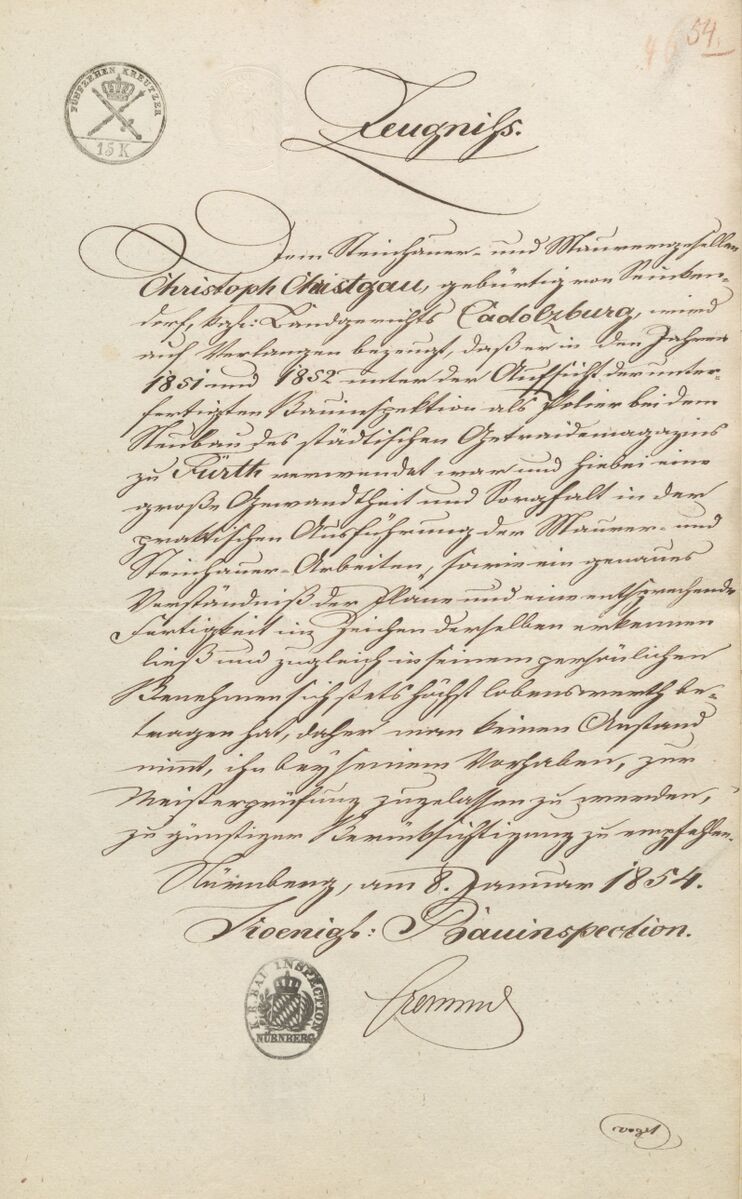 54.
FÜNFZEHEN KREUTZER
15 K
Zeugniß.
Dem Steinhauer- und Maurergesellen
Christoph Christgau, gebürtig von Seucken-
dorf, kgl: Landgerichts Cadolzburg, wird
auf Verlangen bezeugt, daß er in den Jahren
1851 und 1852 unter der Aufsicht der unter-
fertigten Bauinspektion als Polier bei dem
Neubau des städtischen Getraidemagazins
zu Fürth verwendet war und hiebei eine
große Gewandtheit und Sorgfalt in der
praktischen Ausführung der Maurer- und
Steinhauer-Arbeiten, sowie ein genaues
Verständniß der Pläne und eine entsprechende
Fertigkeit im Zeichen derselben erkennen
ließ und zugleich in seinem persönlichen
Benehmen sich stets höchst lobenswerth be-
tragen hat, daher man keinen Anstand
nimmt, ihn bey seinem Vorhaben, zur
Meisterprüfung zugelassen zu werden,
zu günstiger Berücksichtigung zu empfehlen.
Nürnberg, am 8. Januar 1854.
Koenigl: Bauinspection.
K. B. BAU INSPECTION
NÜRNBERG